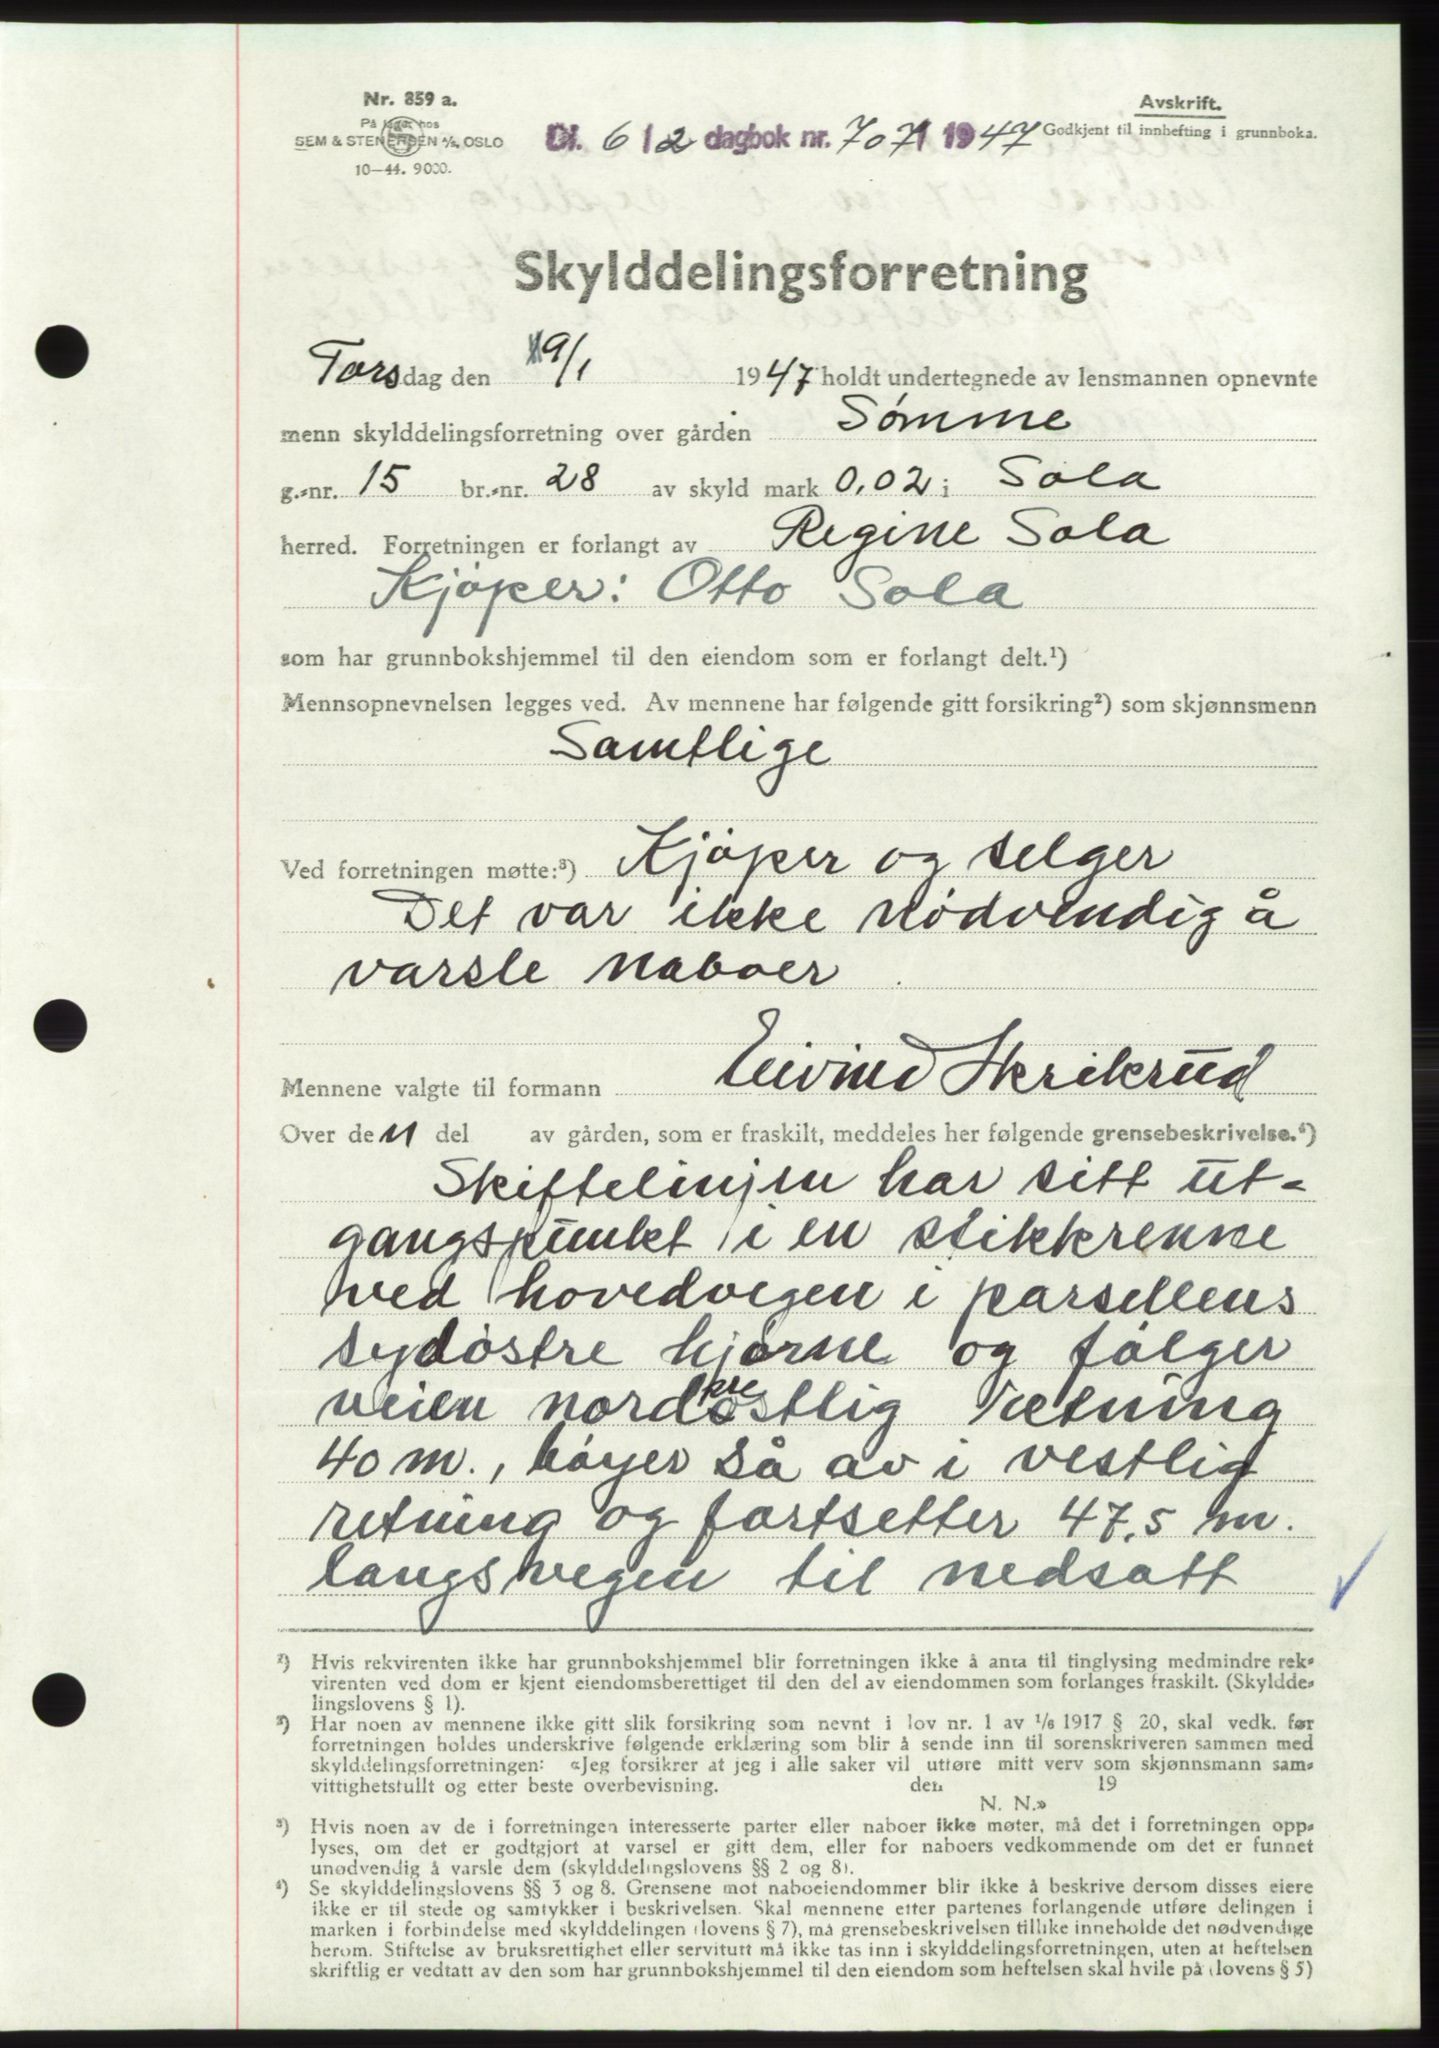 Nr. 859 a.
På lager hos
SEM & STENERSEN A/S, OSLO
10—44. 9000.
Dt. 6/2 dagbok nr. 707 1947
Avskrift.
Godkjent til innhefting i grunnboka.
Skylddelingsforretning
Torsdag den 9/1 1947 holdt undertegnede av lensmannen opnevnte
menn skylddelingsforretning over gården Sømme
g.-nr. 15 br.-nr. 28 av skyld mark 0,02 i Sola
herred. Forretningen er forlangt av Regine Sola
Kjøper: Otto Sola
som har grunnbokshjemmel til den eiendom som er forlangt delt.¹)
Mennsopnevnelsen legges ved. Av mennene har følgende gitt forsikring²) som skjønnsmenn
Samtlige
Ved forretningen møtte:³) Kjøper og selger
Det var ikke nødvendig å
varsle naboer
Mennene valgte til formann Eivind Skrikrud
Over den del av gården, som er fraskilt, meddeles her følgende grensebeskrivelse.⁴)
Skiftelinjen har sitt ut-
gangspunkt i en stikkrenne
ved hovedvegen i parsellens
sydøstre hjørne og følger
veien nordøstlig retning
40 m., bøyer så av i vestlig
retning og fortsetter 47,5 m.
langs vegen til nedsatt
¹) Hvis rekvirenten ikke har grunnbokshjemmel blir forretningen ikke å anta til tinglysing medmindre rek-
virenten ved dom er kjent eiendomsberettiget til den del av eiendommen som forlanges fraskilt. (Skyldde-
lingslovens § 1).
²) Har noen av mennene ikke gitt slik forsikring som nevnt i lov nr. 1 av 1/6 1917 § 20, skal vedk. før
forretningen holdes underskrive følgende erklæring som blir å sende inn til sorenskriveren sammen med
skylddelingsforretningen: «Jeg forsikrer at jeg i alle saker vil utføre mitt verv som skjønnsmann sam-
vittighetsfullt og etter beste overbevisning. den 19
N. N.»
³) Hvis noen av de i forretningen interesserte parter eller naboer ikke møter, må det i forretningen opp-
lyses, om det er godtgjort at varsel er gitt dem, eller for naboers vedkommende om det er funnet
unødvendig å varsle dem (skylddelingslovens §§ 2 og 8).
⁴) Se skylddelingslovens §§ 3 og 8. Grensene mot naboeiendommer blir ikke å beskrive dersom disses eiere
ikke er til stede og samtykker i beskrivelsen. Skal mennene etter partenes forlangende utføre delingen i
marken i forbindelse med skylddelingen (lovens § 7), må grensebeskrivelsen tillike inneholde det nødvendige
herom. Stiftelse av bruksrettighet eller servitutt må ikke tas inn i skylddelingsforretningen, uten at heftelsen
skriftlig er vedtatt av den som har grunnbokshjemmel til den eiendom som heftelsen skal hvile på (lovens § 5)